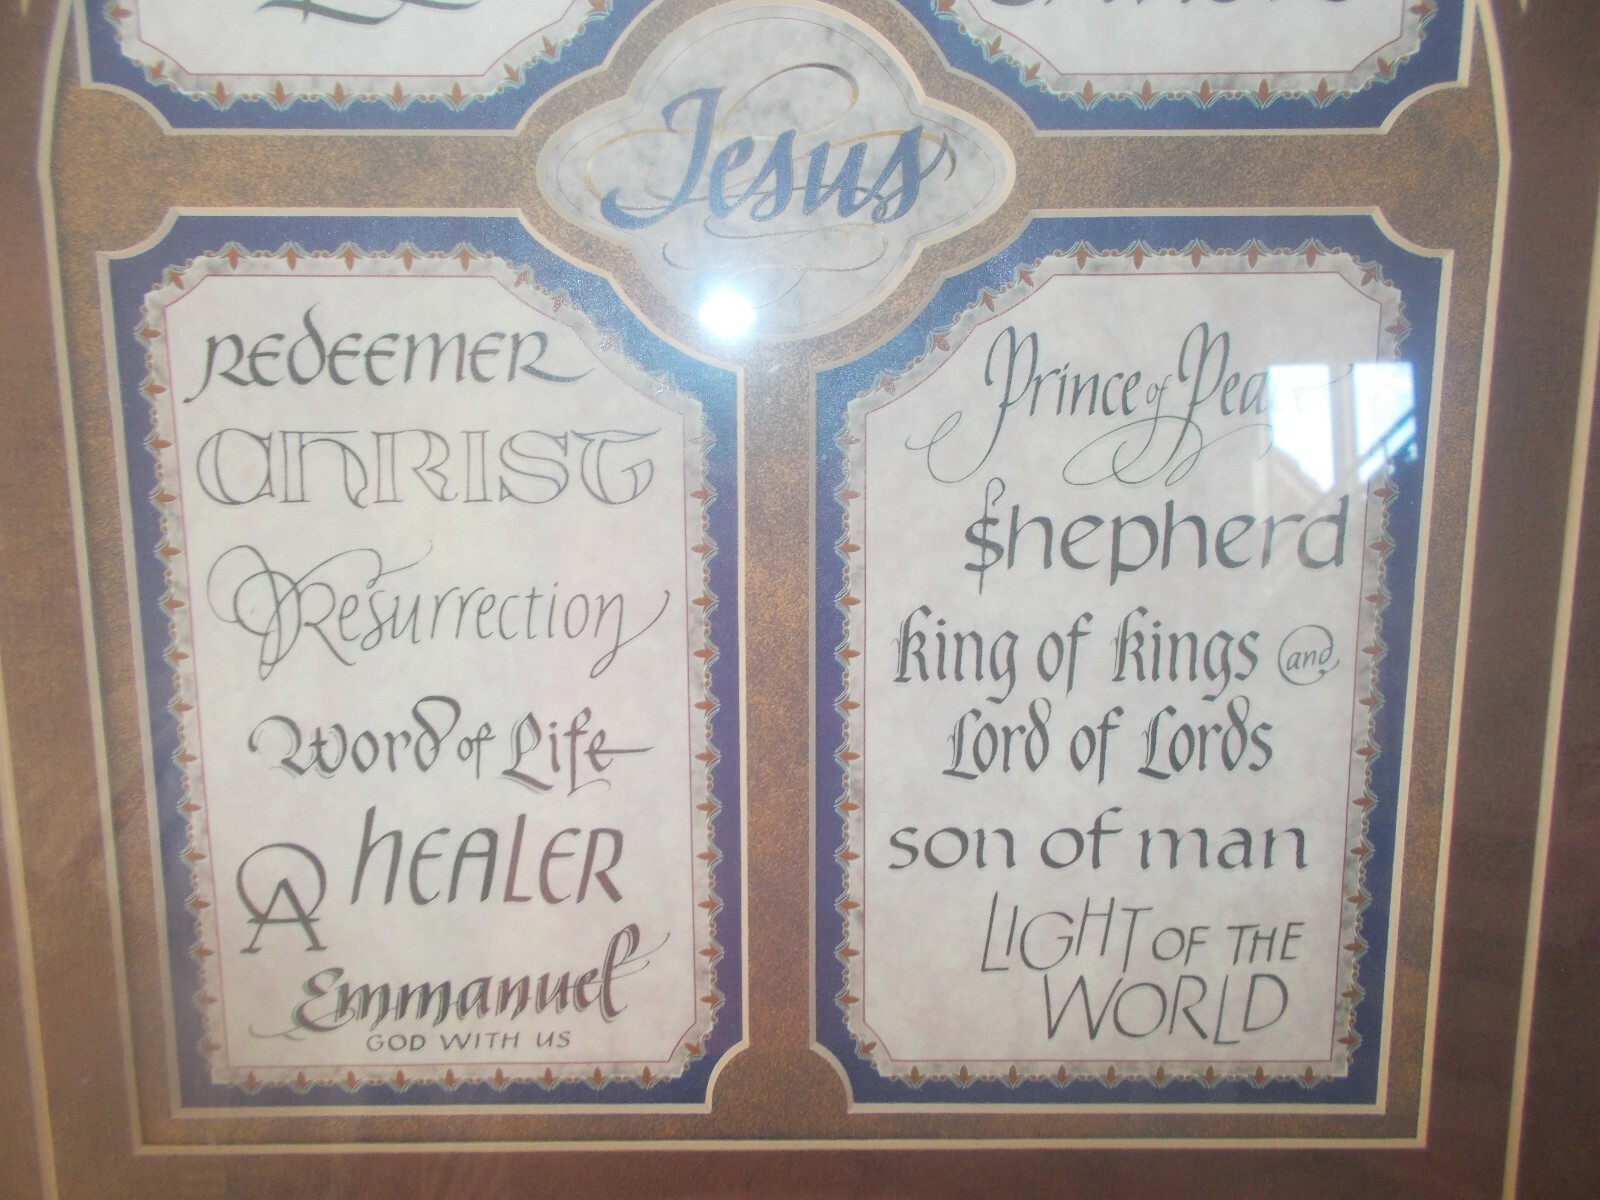 Jesus
REDEEMER
CHRIST
Resurrection
Word of Life
HEALER
Emmanuel
GOD WITH US
Prince of
Shepherd
king of kings and
Lord of Lords
son of man
LIGHT OF THE
WORLD